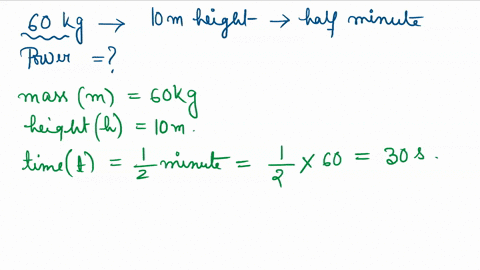 60 kg → 10m height → half minute
Power = ?
mass (m) = 60kg
height (h) = 10m.
time (t) = 1/2 minute = 1/2 × 60 = 30 s.